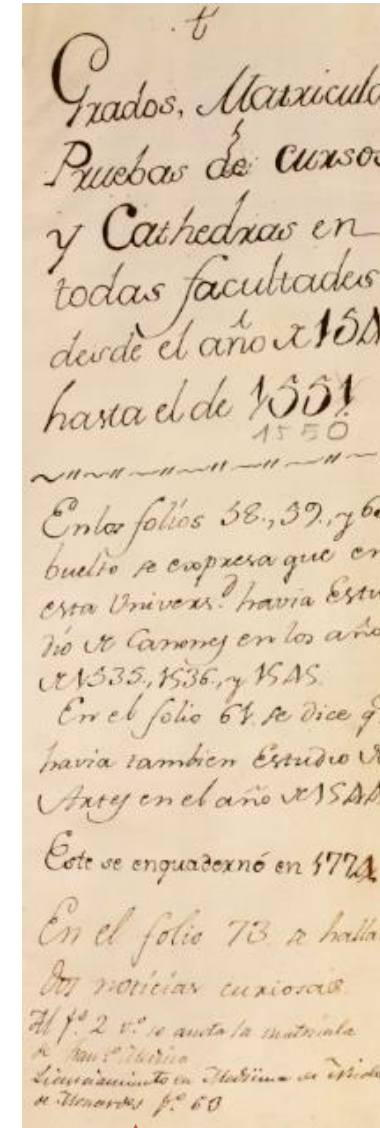 t
Grados, Matricula
Pruebas de cursos
y Cathedras en
todas facultades
desde el año de 154
hasta el de 1551.
1550
En los folios 58., 59., y 60
buelto se expresa que en
esta Univers.d havia Estu
dio de Canones en los año
de 1535., 1536., y 1545.
En el folio 61. se dice q
havia tambien Estudio de
Artes en el año de 1544
Este se enquadernó en 1774
En el folio 73 se halla
dos noticias curiosas.
Al f.º 2 v.º se anota la matricula
de
Licenciamiento en Medicina de Nicolas
de Monardes f.º 60